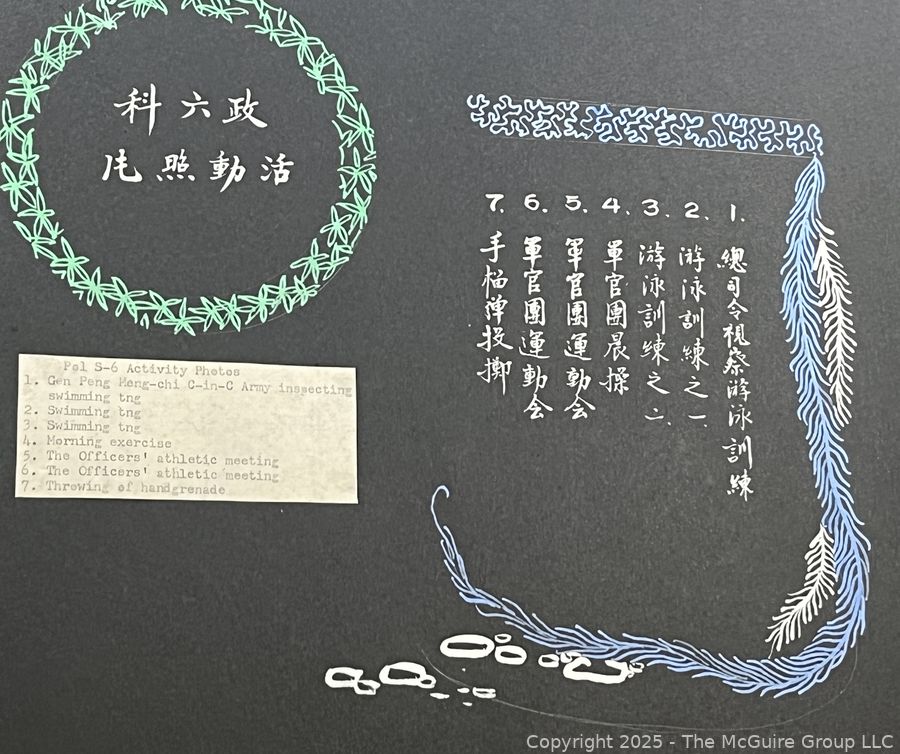 政六科
活動照片
1. 總司令視察游泳訓練
2. 游泳訓練之一.
3. 游泳訓練之二.
4. 軍官團晨操
5. 軍官團運動会
6. 軍官團運動会
7. 手榴弹投擲
Pol S-6 Activity Photos
1. Gen Peng Meng-chi C-in-C Army inspecting
swimming tng
2. Swimming tng
3. Swimming tng
4. Morning exercise
5. The Officers' athletic meeting
6. The Officers' athletic meeting
7. Throwing of handgrenade
Copyright 2025 - The McGuire Group LLC